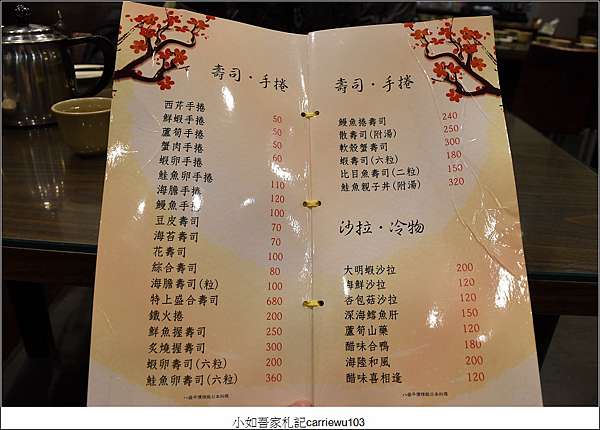 壽司・手捲
西芹手捲
鮮蝦手捲 50
蘆筍手捲 50
蟹肉手捲 50
蝦卵手捲 60
鮭魚卵手捲 110
海膽手捲 120
鰻魚手捲 100
豆皮壽司 70
海苔壽司 70
花壽司 100
綜合壽司 80
海膽壽司(粒) 100
特上盛合壽司 680
鐵火捲 200
鮮魚握壽司 250
炙燒握壽司 300
蝦卵壽司(六粒) 200
鮭魚卵壽司(六粒) 360
壽司・手捲
鰻魚捲壽司 240
散壽司(附湯) 250
軟殼蟹壽司 300
蝦壽司(六粒) 180
比目魚壽司(二粒) 150
鮭魚親子丼(附湯) 320
沙拉・冷物
大明蝦沙拉 200
海鮮沙拉 120
杏包菇沙拉 120
深海鱈魚肝 150
蘆筍山藥 120
醋味合鴨 180
海陸和風 200
醋味喜相逢 120
小如吾家札記carriewu103